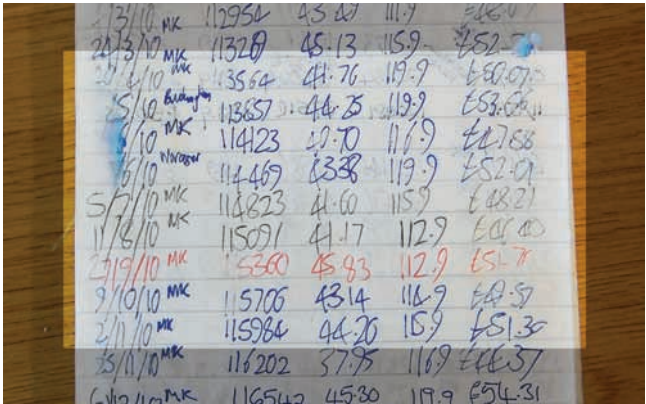 /3/10 MK 112954 43.49 111.9
24/3/10 MK 113269 45.13 115.9 £52.
/10 MK 113564 41.76 119.9
/5/10 Buckingham 113857 44.25 119.9
/10 MK 114123 116.9
/6/10 114469 43.38 119.9 £52.01
5/7/10 MK 114823 41.60 115.9 £48.21
11/8/10 MK 115091 41.17 112.9
/9/10 MK 115360 45.83 112.9
9/10/10 MK 115706 43.14 114.9 £49.57
2/11/10 MK 115984 44.26 115.9 £51.30
25/11/10 MK 116202 37.95 116.9 £44.37
6/12/10 MK 116542 45.30 119.9 £54.31